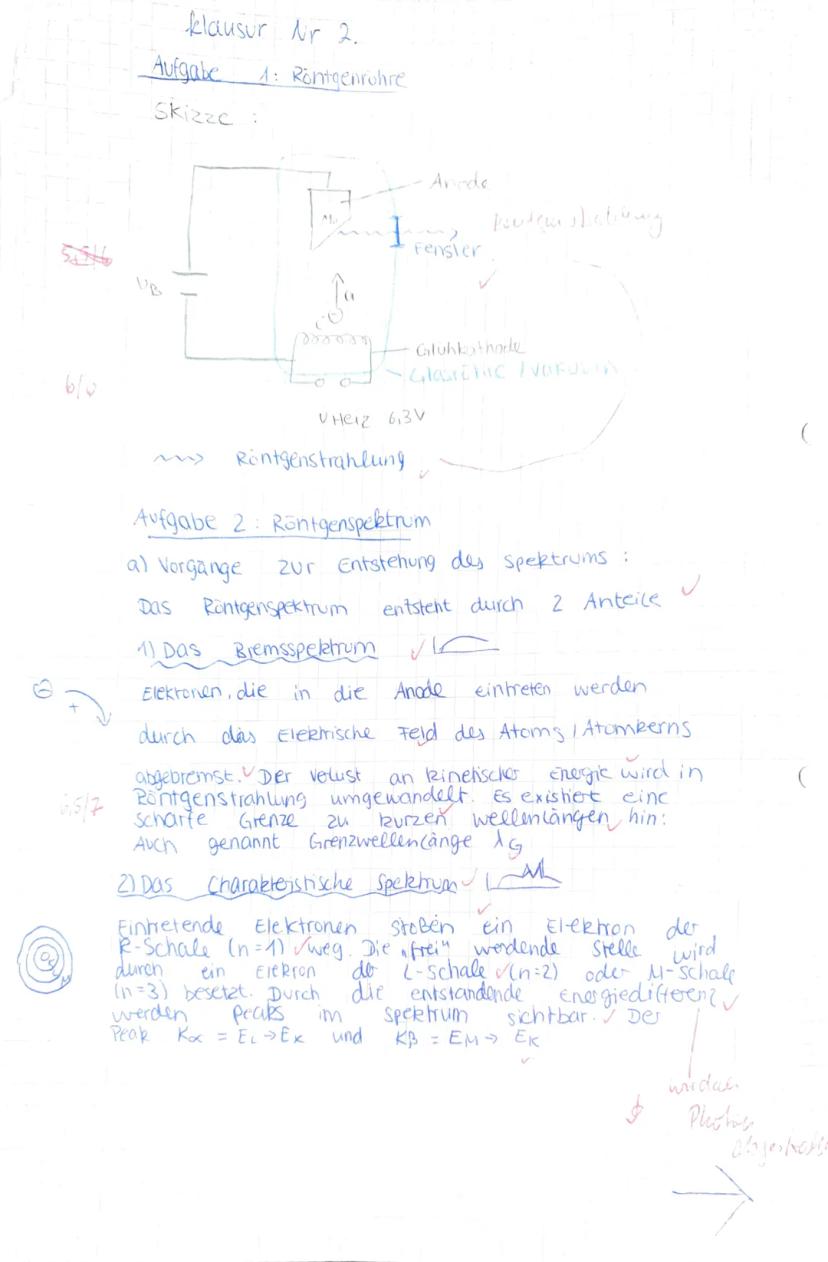 Klausur Nr 2.
Aufgabe 1: Röntgenröhre
Skizze :
Anode
Mo
Röntgenstrahlung
Fenster
5,5/6
UB
a
e
Glühkathode
Glasröhre / Vakuum
6/6
U Heiz 6,3V
Röntgenstrahlung
Aufgabe 2: Röntgenspektrum
a) Vorgänge zur Entstehung des Spektrums :
Das Röntgenspektrum entsteht durch 2 Anteile
1) Das Bremsspektrum
Elektronen, die in die Anode eintreten werden
durch das Elektrische Feld des Atoms / Atomkerns
abgebremst. Der Verlust an kinetischer Energie wird in
Röntgenstrahlung umgewandelt. Es existiert eine
6,5/7
scharfe Grenze zu kurzen Wellenlängen hin:
Auch genannt Grenzwellenlänge λG
2) Das Charakteristische Spektrum
Eintretende Elektronen stoßen ein Elektron der
K-Schale (n=1) weg. Die „frei" werdende Stelle wird
durch ein Elektron der L-Schale (n=2) oder M-Schale
(n=3) besetzt. Durch die entstandende Energiedifferenz
werden Peaks im Spektrum sichtbar. Der
Peak Kα = EL → EK und Kβ = EM → EK
werden
Photonen